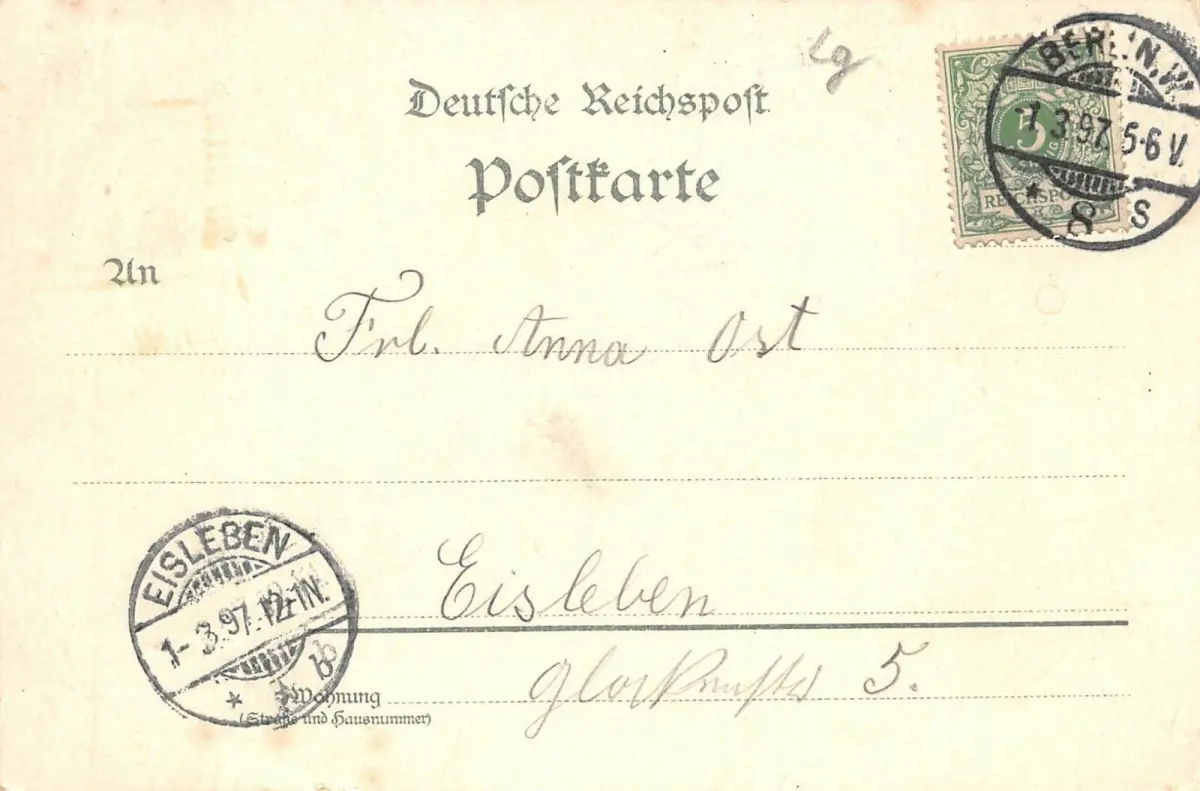 Lg
Deutsche Reichspost
Postkarte
BERLIN, W.
-1 3.97. 5-6 V.
* 8 S
5
REICHSPO
An
Frl. Anna Ost
EISLEBEN
1-3.97. 12-1N.
* b
Eisleben
Wohnung
(Straße und Hausnummer)
Glockenstr 5.